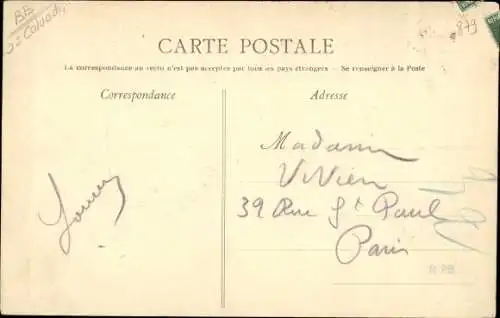 BB
Calvados
879
CARTE POSTALE
La correspondance au verso n'est pas acceptée par tous les pays étrangers — Se renseigner à la Poste
Correspondance
Adresse
Madame
Vivien
39 Rue St Paul
Paris